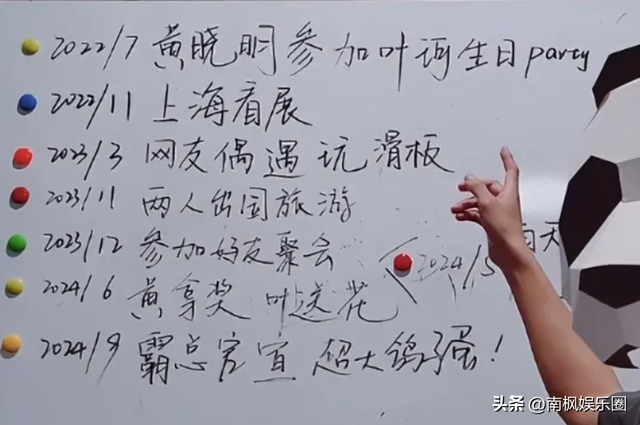 2022/7 黄晓明参加叶珂生日party
2022/11 上海看展
2023/3 网友偶遇玩滑板
2023/11 两人出国旅游
2023/12 参加好友聚会
2024/5 白天
2024/6 黄拿奖 叶送花
2024/9 霸总官宣 超大鸽子蛋!
头条 @南枫娱乐圈